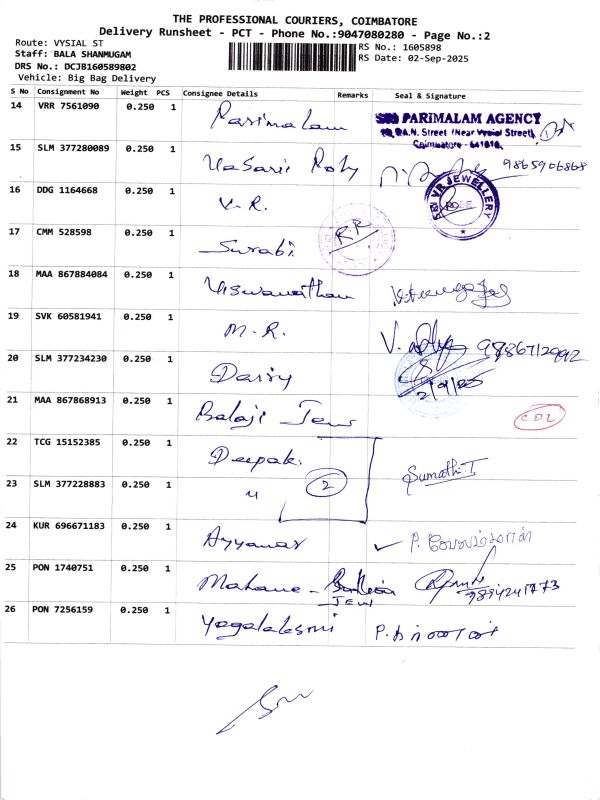 THE PROFESSIONAL COURIERS, COIMBATORE
Delivery Runsheet - PCT - Phone No.:9047080280 - Page No.:2
Route: VYSIAL ST
RS No.: 1605898
Staff: BALA SHANMUGAM
RS Date: 02-Sep-2025
DRS No.: DCJB160589802
Vehicle: Big Bag Delivery
S No Consignment No Weight PCS Consignee Details Remarks Seal & Signature
14 VRR 7561090 0.250 1 Parimalam
SRI PARIMALAM AGENCY
Street (Near Vysial Street)
Coimbatore - 641016
15 SLM 377280089 0.250 1 9865906868
16 DDG 1164668 0.250 1 V. R.
SRI VR JEWELLERY
17 CMM 528598 0.250 1 Surabi RR
18 MAA 867884084 0.250 1 Viswanathan
19 SVK 60581941 0.250 1 M. R.
20 SLM 377234230 0.250 1 Dairy
21 MAA 867868913 0.250 1 Balaji Jew
22 TCG 15152385 0.250 1 Deepak Sumathi I
23 SLM 377228883 0.250 1 〃 2
24 KUR 696671183 0.250 1 Ayyanar
25 PON 1740751 0.250 1 Jew
26 PON 7256159 0.250 1 Yogalakshmi